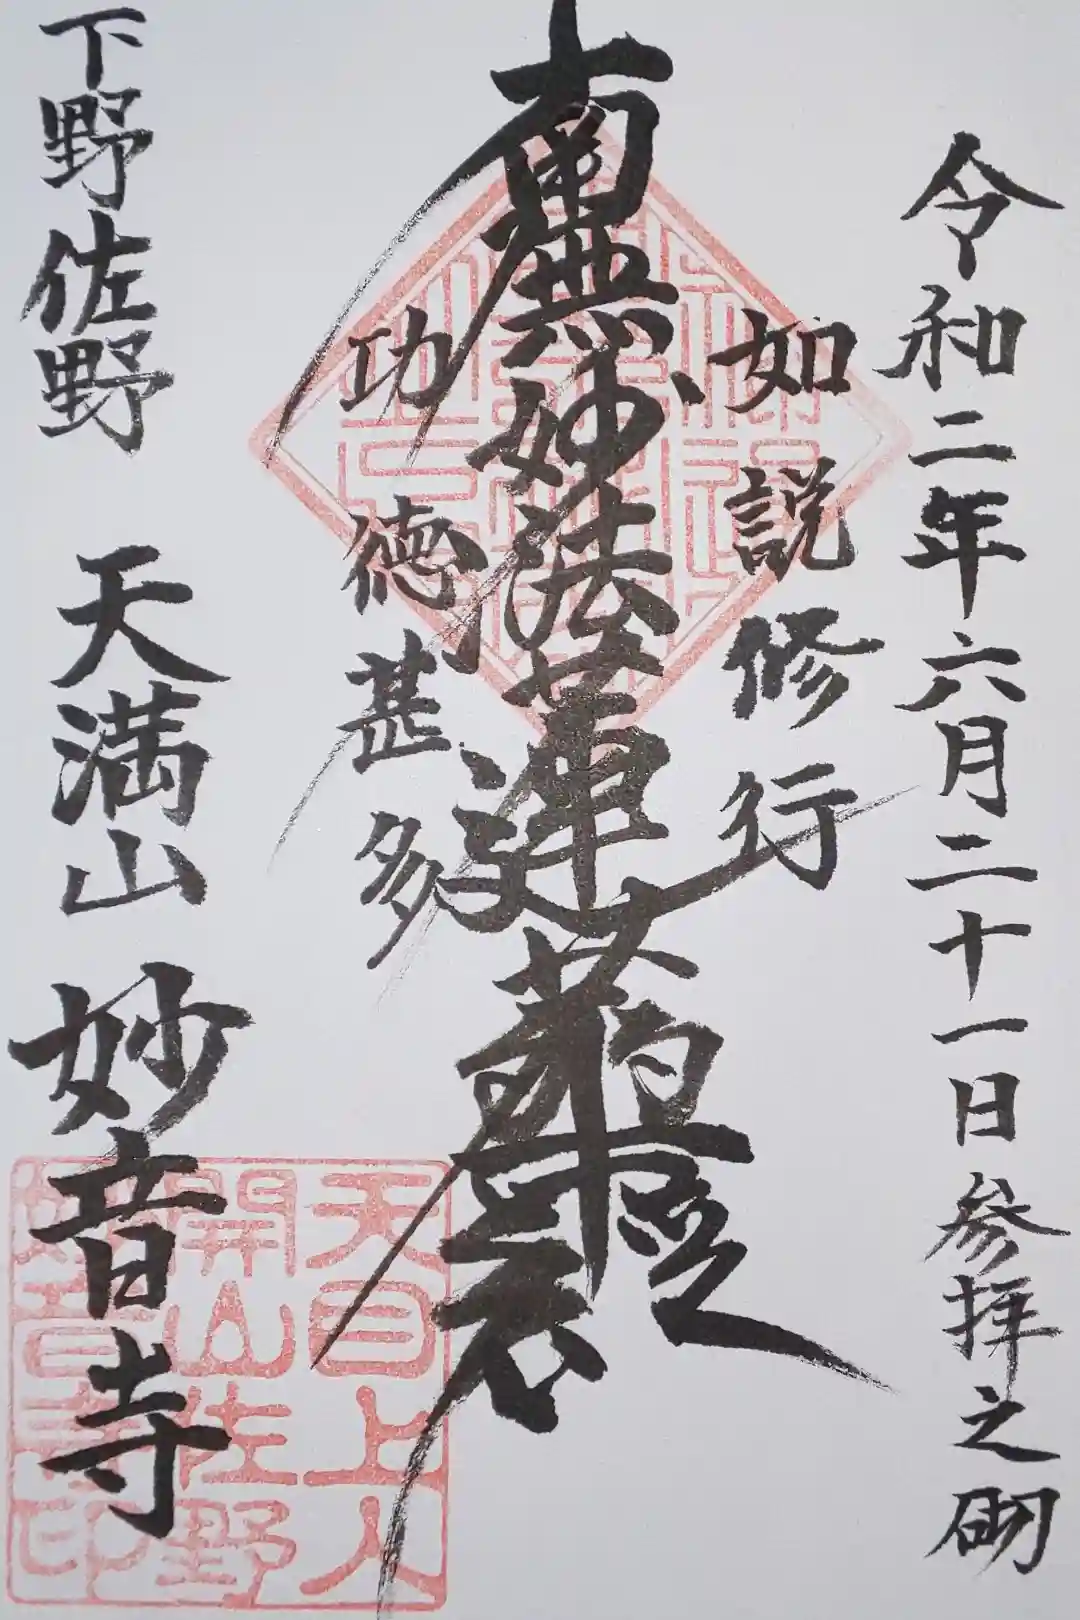 令和二年六月二十一日参拝之砌
如説修行
南無妙法蓮華経
功徳甚多
下野佐野 天満山 妙音寺
天目上人
開山佐野
妙音寺印